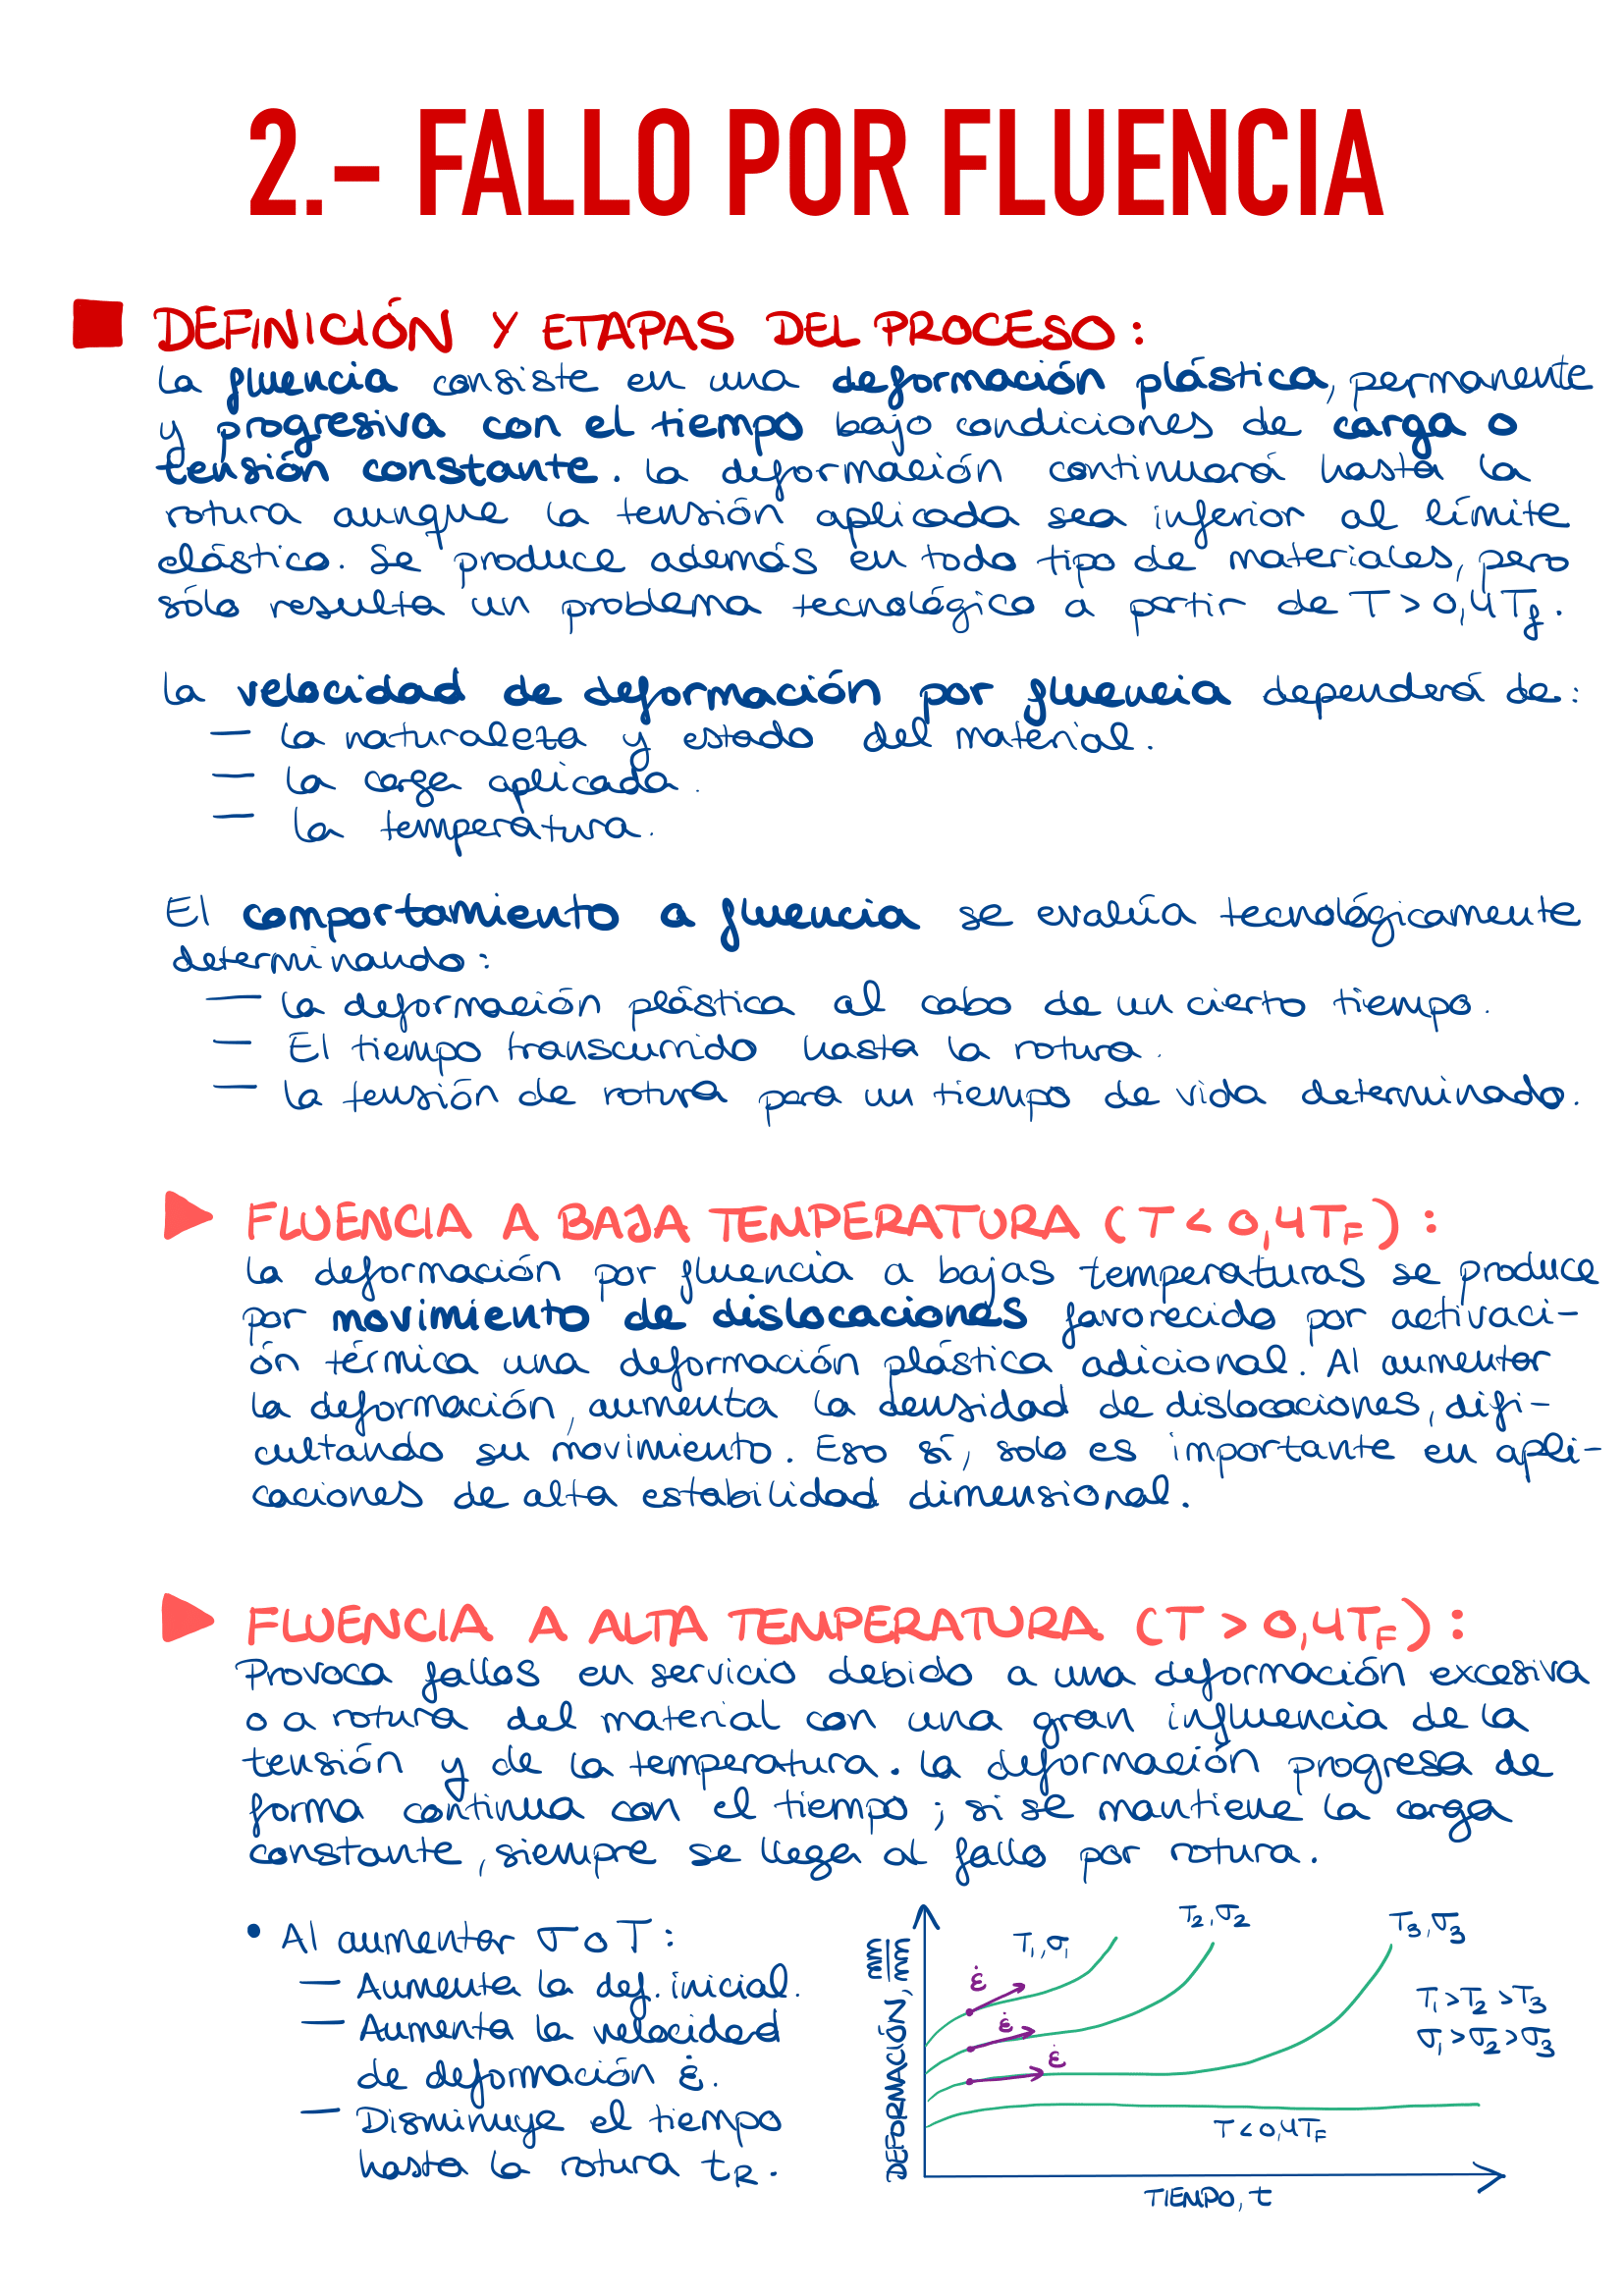 2.- FALLO POR FLUENCIA
DEFINICIÓN Y ETAPAS DEL PROCESO:
La fluencia consiste en una deformación plástica, permanente
y progresiva con el tiempo bajo condiciones de carga o
tensión constante. La deformación continuará hasta la
rotura aunque la tensión aplicada sea inferior al límite
elástico. Se produce además en todo tipo de materiales, pero
sólo resulta un problema tecnológico a partir de T > 0,4Tf.
La velocidad de deformación por fluencia dependerá de:
— La naturaleza y estado del material.
— La carga aplicada.
— La temperatura.
El comportamiento a fluencia se evalúa tecnológicamente
determinando:
— La deformación plástica al cabo de un cierto tiempo.
— El tiempo transcurrido hasta la rotura.
— La tensión de rotura para un tiempo de vida determinado.
FLUENCIA A BAJA TEMPERATURA (T < 0,4TF):
La deformación por fluencia a bajas temperaturas se produce
por movimiento de dislocaciones favorecido por activaci-
ón térmica una deformación plástica adicional. Al aumentar
la deformación, aumenta la densidad de dislocaciones, difi-
cultando su movimiento. Eso sí, solo es importante en apli-
caciones de alta estabilidad dimensional.
FLUENCIA A ALTA TEMPERATURA (T > 0,4TF):
Provoca fallos en servicio debido a una deformación excesiva
o a rotura del material con una gran influencia de la
tensión y de la temperatura. La deformación progresa de
forma continua con el tiempo; si se mantiene la carga
constante, siempre se llega al fallo por rotura.
• Al aumentar σ o T:
— Aumenta la def. inicial.
— Aumenta la velocidad
de deformación ε̇.
— Disminuye el tiempo
hasta la rotura tR.
DEFORMACIÓN, mm/mm
T1, σ1
T2, σ2
T3, σ3
ε̇
ε̇
ε̇
T1 > T2 > T3
σ1 > σ2 > σ3
T < 0,4TF
TIEMPO, t